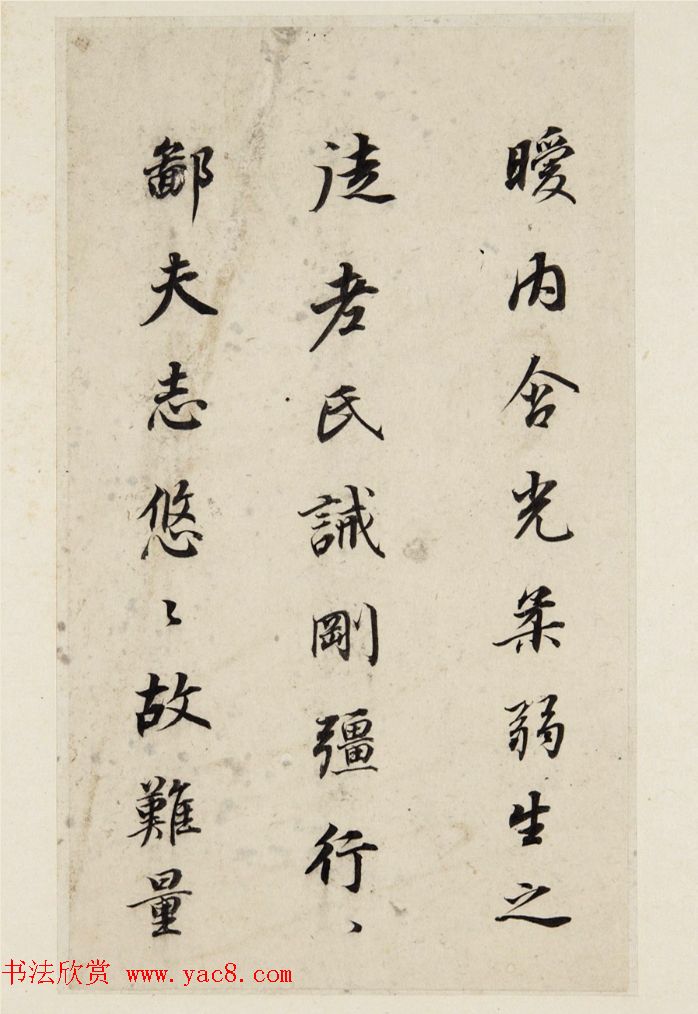 曖内含光柔弱生之
徒老氏誡剛彊行〻
鄙夫志悠〻故難量
书法欣赏 www.yac8.com